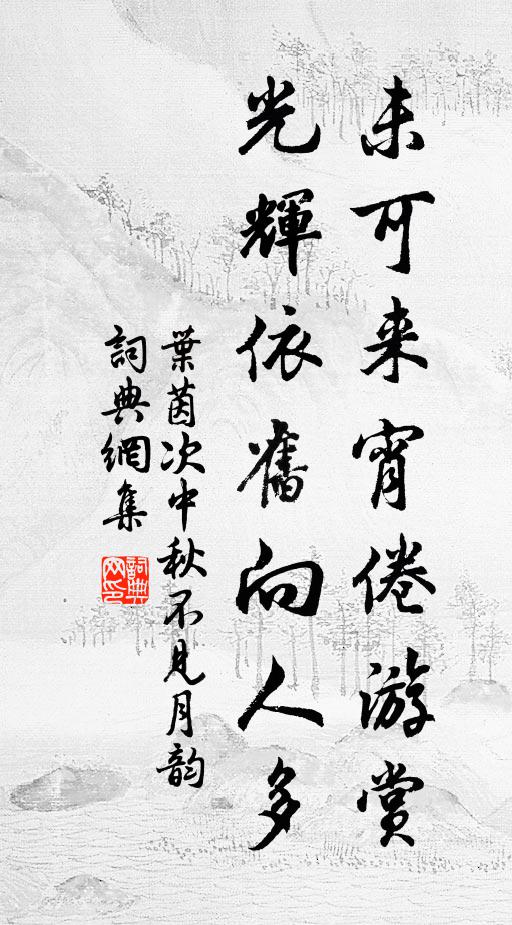 未可来宵倦游赏
光輝依舊向人多
葉茵次中秋不見月韵
詞典網集
詞典網印